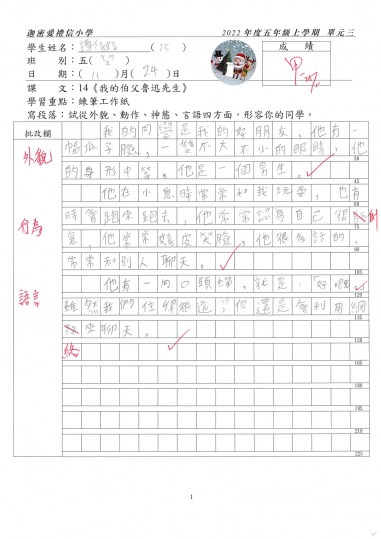 迦密愛禮信小學
2022年度五年級上學期 單元三
學生姓名： (15)
成績
班 別：五( )
甲-
日 期：(11)月(24)日
課 文：14《我的伯父魯迅先生》
學習重點：練筆工作紙
寫段落：試從外貌、動作、神態、言語四方面，形容你的同學。
批改欄
我的同學是我的好朋友，他有一
外貌
幅瓜子臉，一雙不大不小的眼睛，他
30
的身形中等。他是一個男生。
45
他在小息時常常和我玩耍，也有
行為
時會跑來跑去，他常常認為自己很
75
，他常常嬉皮笑臉，他很多話的，
90
常常和別人聊天。
105
語言
他有一句口頭蟬。就是：「好
120
雖然我們住得很遠，但還是會利用網
135
來聊天。
150
絡
158
180
195
210
225
1